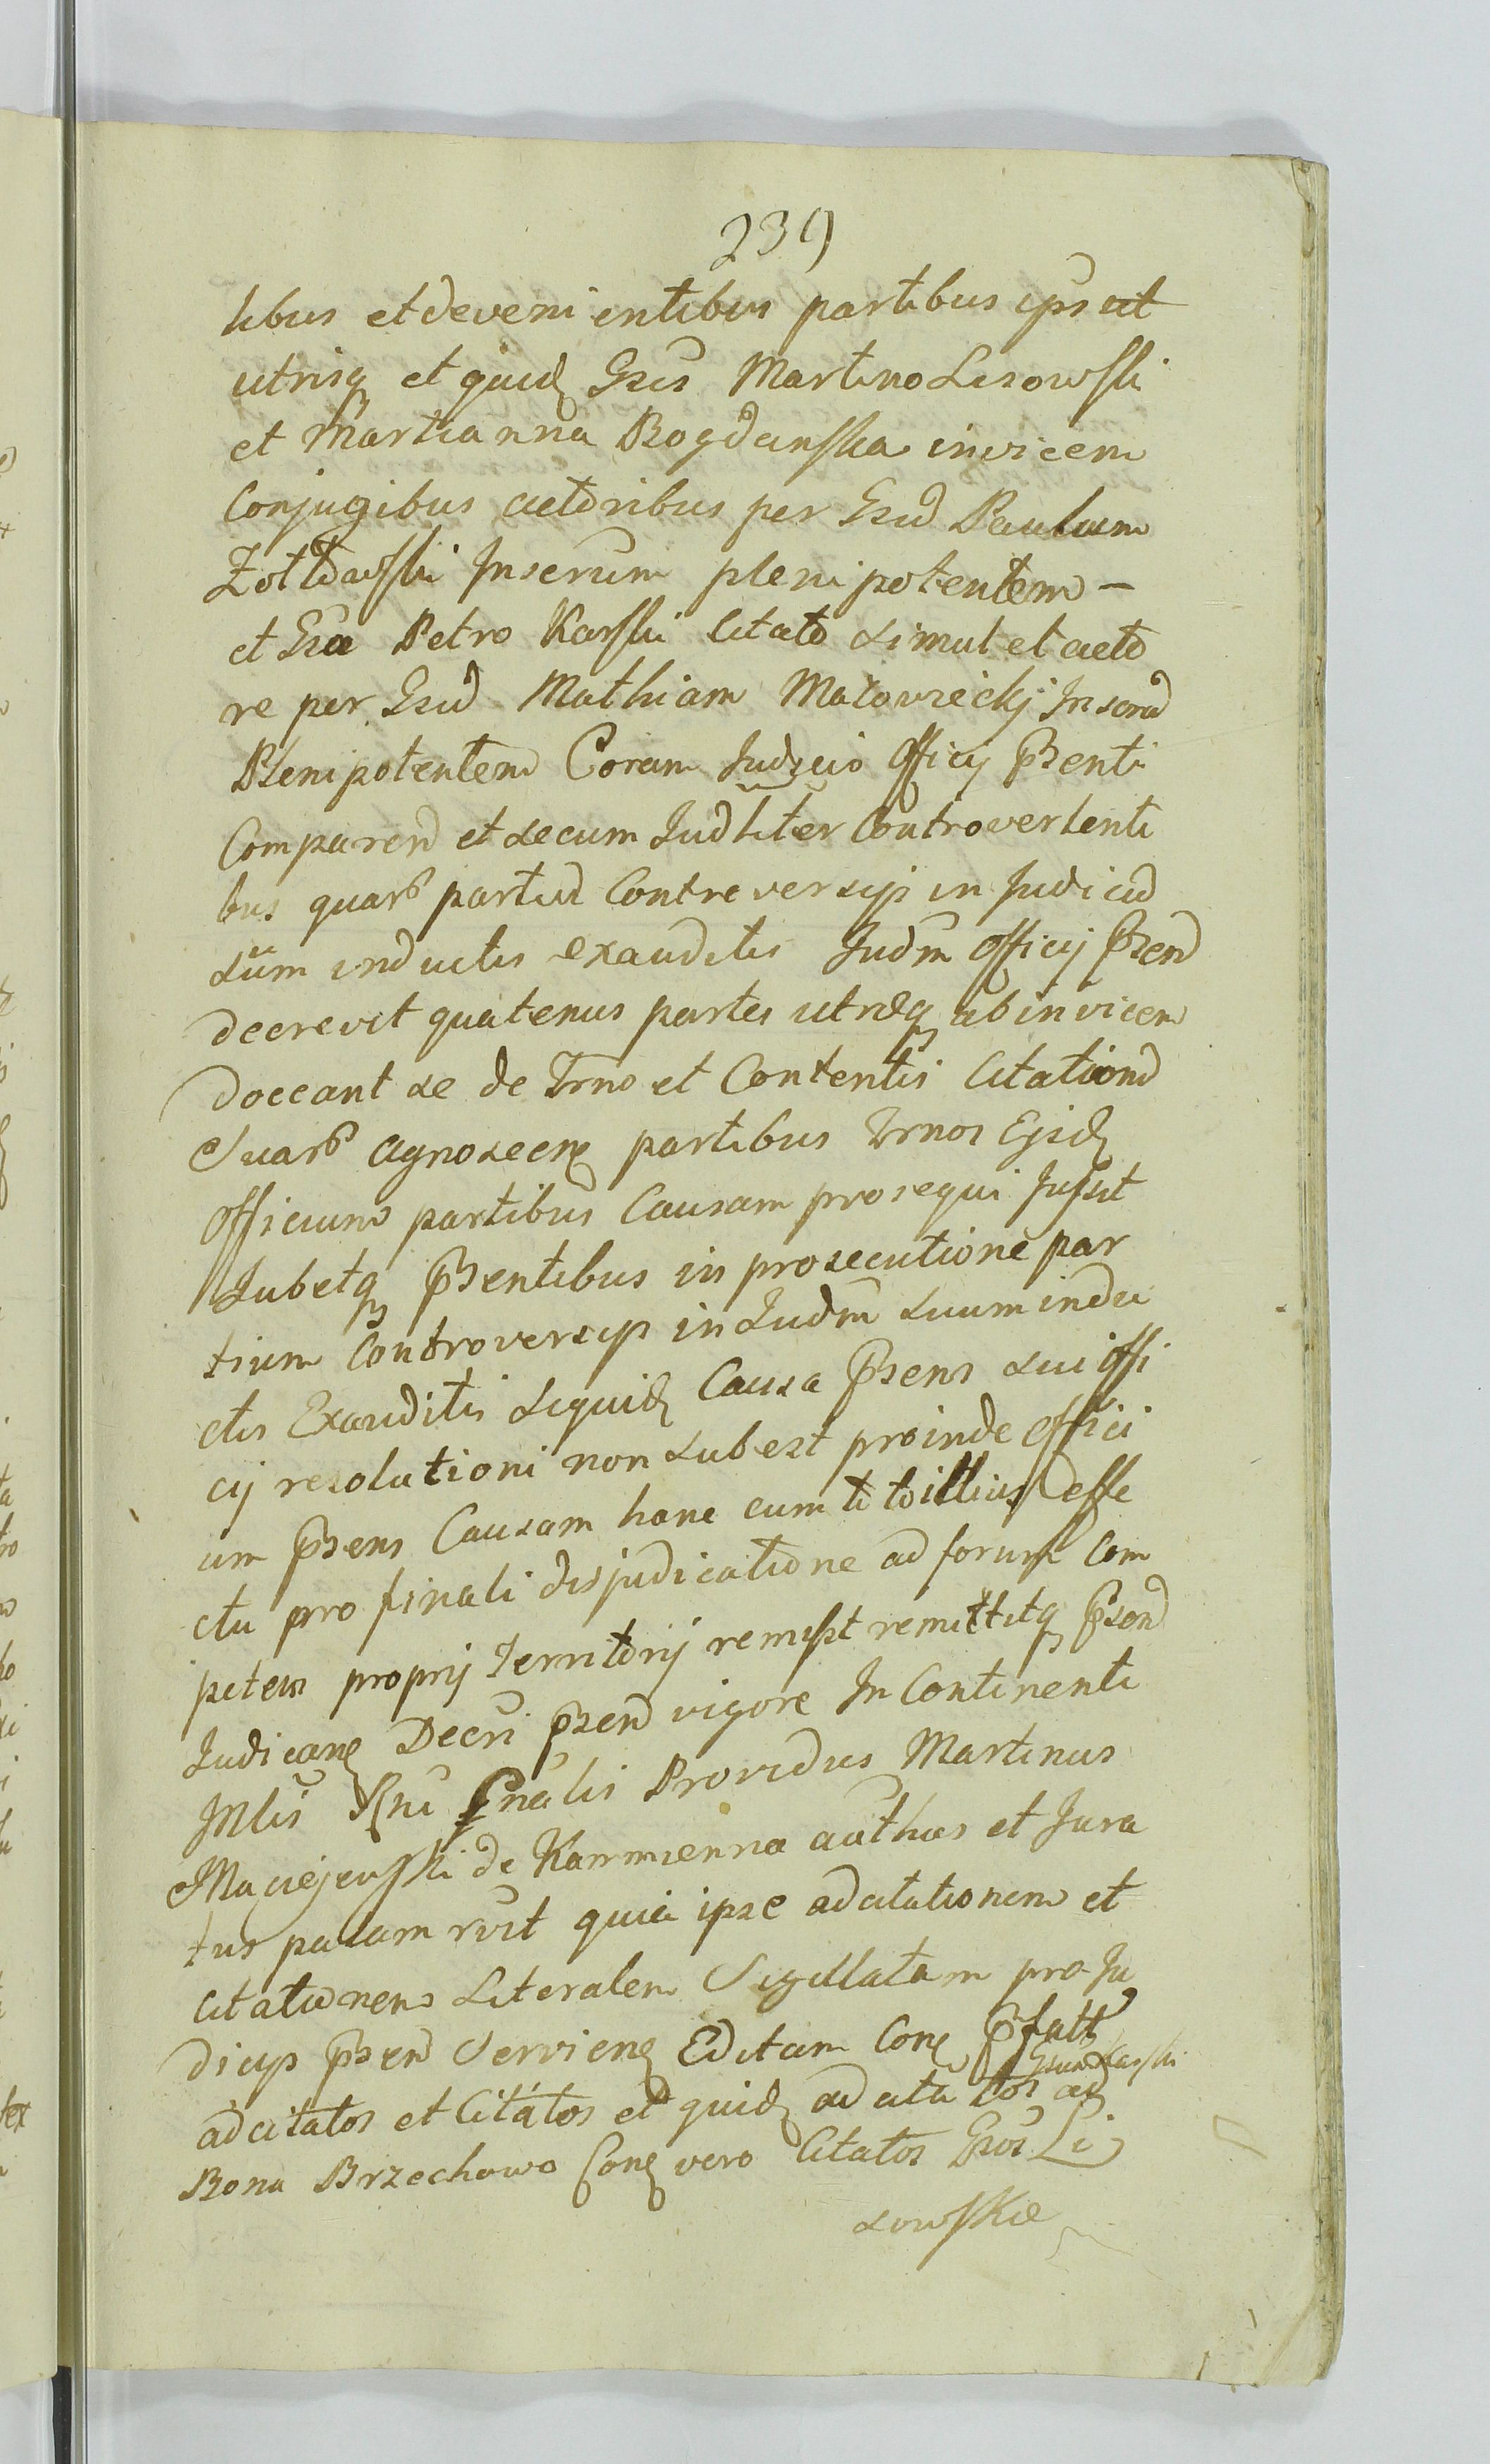 239
libus et devenientibus partibus ips ut
utrisq et quid Gsis Martino Lisowski
et Martianna Bogdanska invicem
Conjugibus actoribus per Gsud Paulum
Zoltowski Inserum plenipotentem –
et Gso Petro Karski Citato simul et acto
re per Gsud Mathiam Matowieckj Insernd
Plenipotentem Coram Judicio Officij Psenti
Comparend et secum Judliter Controvertenti
bus quarb partiud Controversijs in Judiciu
suum inductis exauditis Judm Officij Psend
decrevit quatenus partes utrosq abinvicem
doceant se de Trno et Contentis Citationd
Suarb agnoscenq partibus Trnos Ejsdq
Officium partibus Causam prosequi Jussit
Jubetq Psentibus in prosecutione par
tium Controversijs in Judm suum indu
ctis Exauditis siquidq Causa Psens sui Offi
cij resolutioni non subest proinde Offici
um Psens Causam hanc cum toto illius effe
ctu pro finali disjudicatione ad forum Com
petens proprij Territorij remisit remittitq Psend
Judicanq Decri psend vigore In Continenti
Mlis Rni Gnalis Providus Martinus
Maciejewski de Kammienna authus et Jura
tus palam rvit quia ipse adcitationem et
Citationem Literalem Sigillatam pro Ju
dicijs psend Servienq Editam Conq Pfatt
adcitatos et Citatos et quidq adcitatos Gsum Karski ad
Bona Brzechowo Conq vero Citatos Gsos Li
sowskie